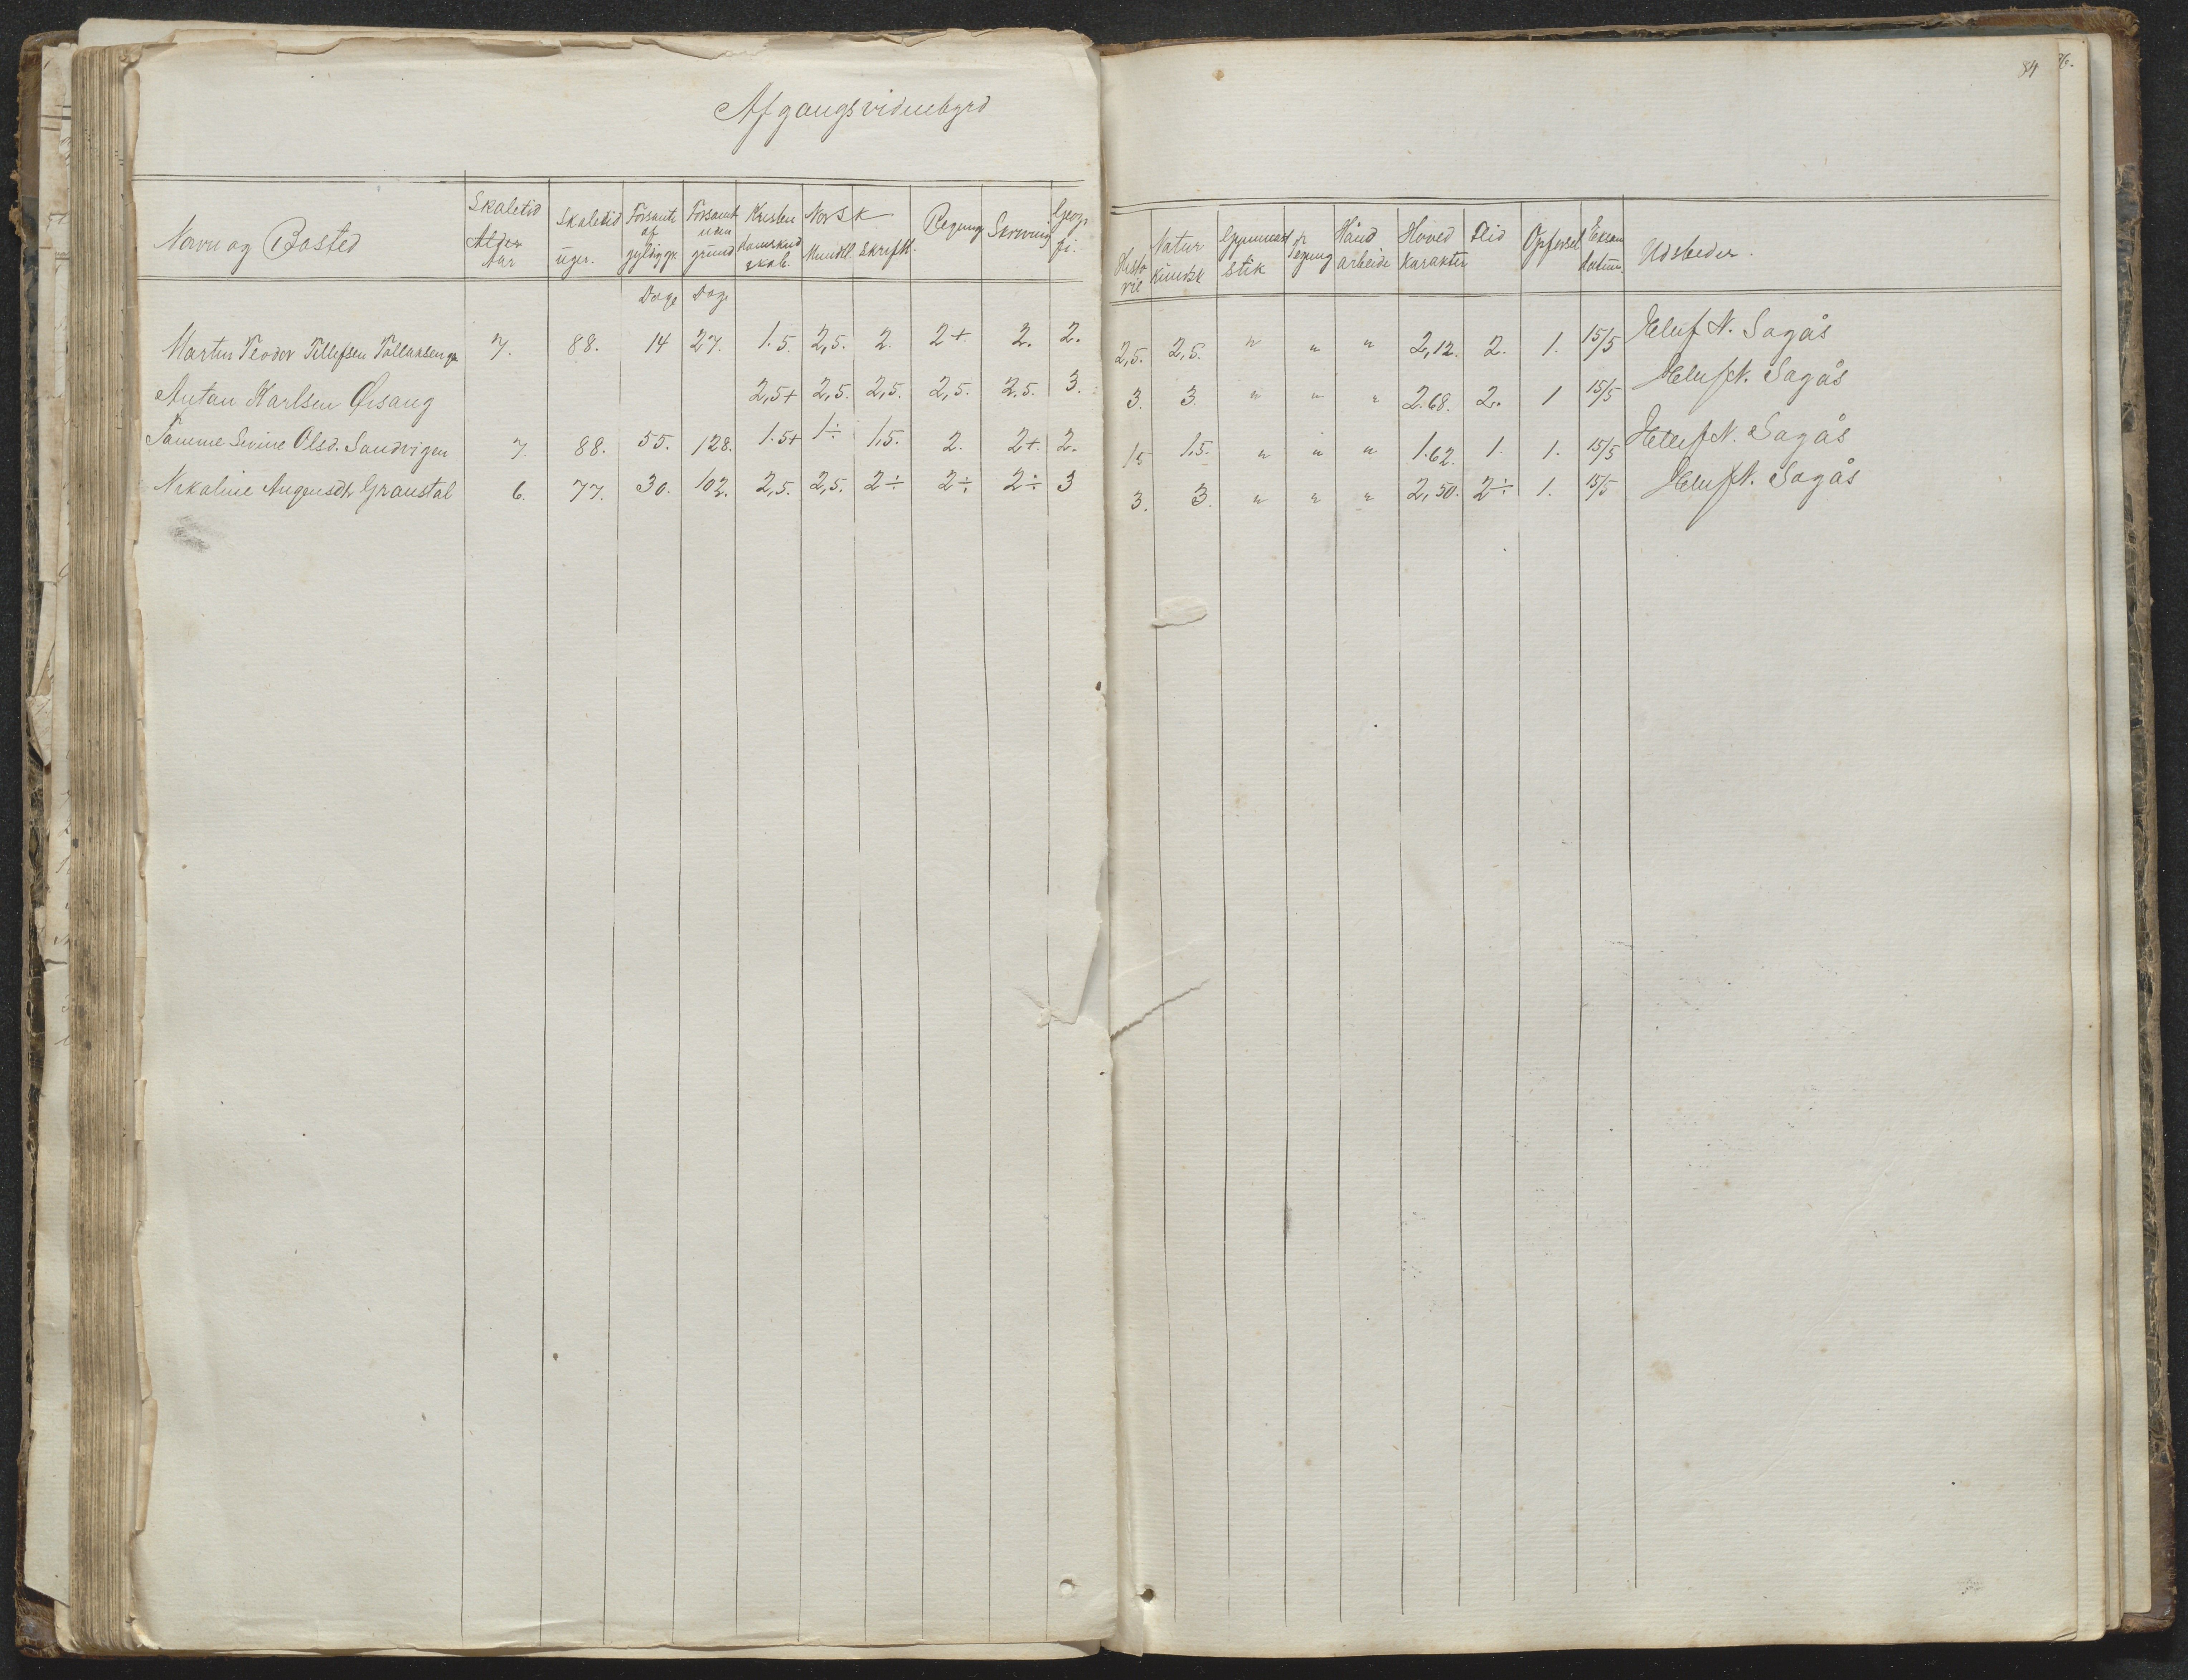 Afgangsvidnebyrd
84
Navn og Bosted
Skoletid Alder Aar
Skoletid uger.
Forsømte af gyldig gr.
Forsømt uden grund
Kristendomskundskab.
Norsk
Mundtl.
Skriftl.
Regning
Skrivning
Geogr. fi.
Historie
Naturkundsk
Gymnastik
Tegning
Håndarbeide
Hovedkarakter
Flid
Opførsel
Eksam datum.
Udsteder.
Dage Dage
Martin Teodor Tellefsen 7. 88. 14 27. 1.5. 2,5. 2. 2+. 2. 2. 2,5. 2,5. " " " 2,12. 2. 1. 15/5 N. Sagås
Antan Karlsen Øisang 2,5+ 2,5. 2,5. 2,5. 2.5. 3. 3. 3. " " " 2.68. 2. 1 15/5 N. Sagås
Tamme Sevine Olsd. Sandvigen 7. 88. 55. 128. 1.5+ 1÷ 1,5. 2. 2+. 2. 1,5 1,5. " " " 1.62. 1. 1. 15/5 N. Sagås
Nikoline Augensdtr Granstøl 6. 77. 30. 102. 2,5. 2,5. 2÷ 2÷ 2÷ 3 3. 3. " " " 2,50. 2÷ 1. 15/5 N. Sagås